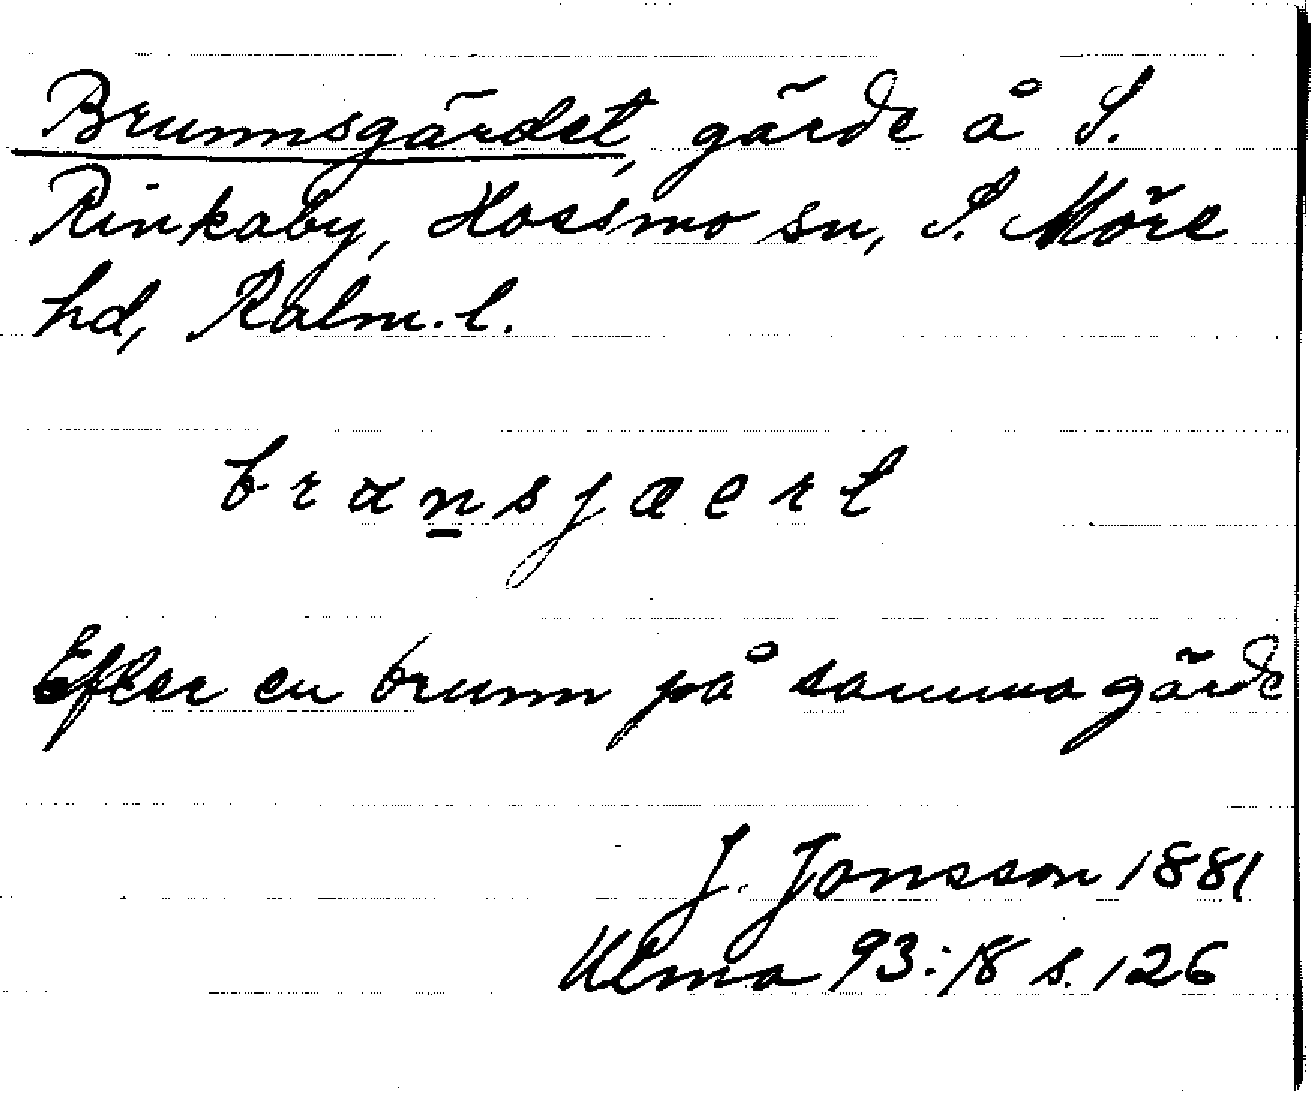 Brunnsgärdet, gärde å S.
Rinkaby, Hossmo sn, S. Möre
hd, Kalm. l.
bransjæert
Efter en brunn på samma gärde
J. Jonsson 1881
Ulma 93:18 s. 126